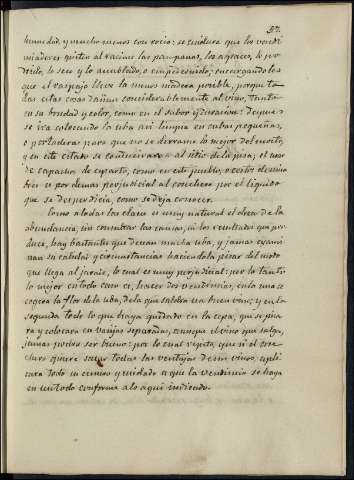 57.
humedad, y mucho menos con rocio: se cuidara que los vendi-
miadores quiten al racimo las pampanas, los agraces, lo po-
drido, lo seco y lo anublado, o empedernido; encargandoles
que el raspajo lleve la menos madera posible, porque to-
das estas cosas dañan considerablemente al vino, tanto
en su bondad y color, como en el sabor y duracion. Despues
se ira colocando la uba asi limpia en cubas pequeñas,
o portaderas para que no se derrame lo mejor del mosto,
y en este estado se conducirá al sitio de la pisa; el uso
de capachos de esparto, como en este pueblo, o cestos de mim
bres es por demas perjudicial al cosechero por el liquido
que se desperdicia, como se deja conocer.
Como a todas las clases es muy natural el deseo de la
abundancia, sin considerar las causas, ni los resultados que pro-
duce, hay bastantes que desean mucha uba, y jamas exami-
nan su calidad y circunstancias haciendola pisar del modo
que llega al jaraiz, lo cual es muy perjudicial: por lo tanto
lo mejor en todo caso es, hacer dos vendimias, en la una se
cogera la flor de la uba, de la que saldra un buen vino, y en la
segunda todo lo que haya quedado en la cepa, que se pisa-
ra y colocara en vasijas separadas, aunque el vino que salga,
jamas podra ser bueno: por lo cual repito, que si el cose-
chero quiere sacar todas las ventajas de un vino, apli-
cara todo su esmero y cuidado a que la vendimia se haga
en un todo conforme a lo aqui indicado.